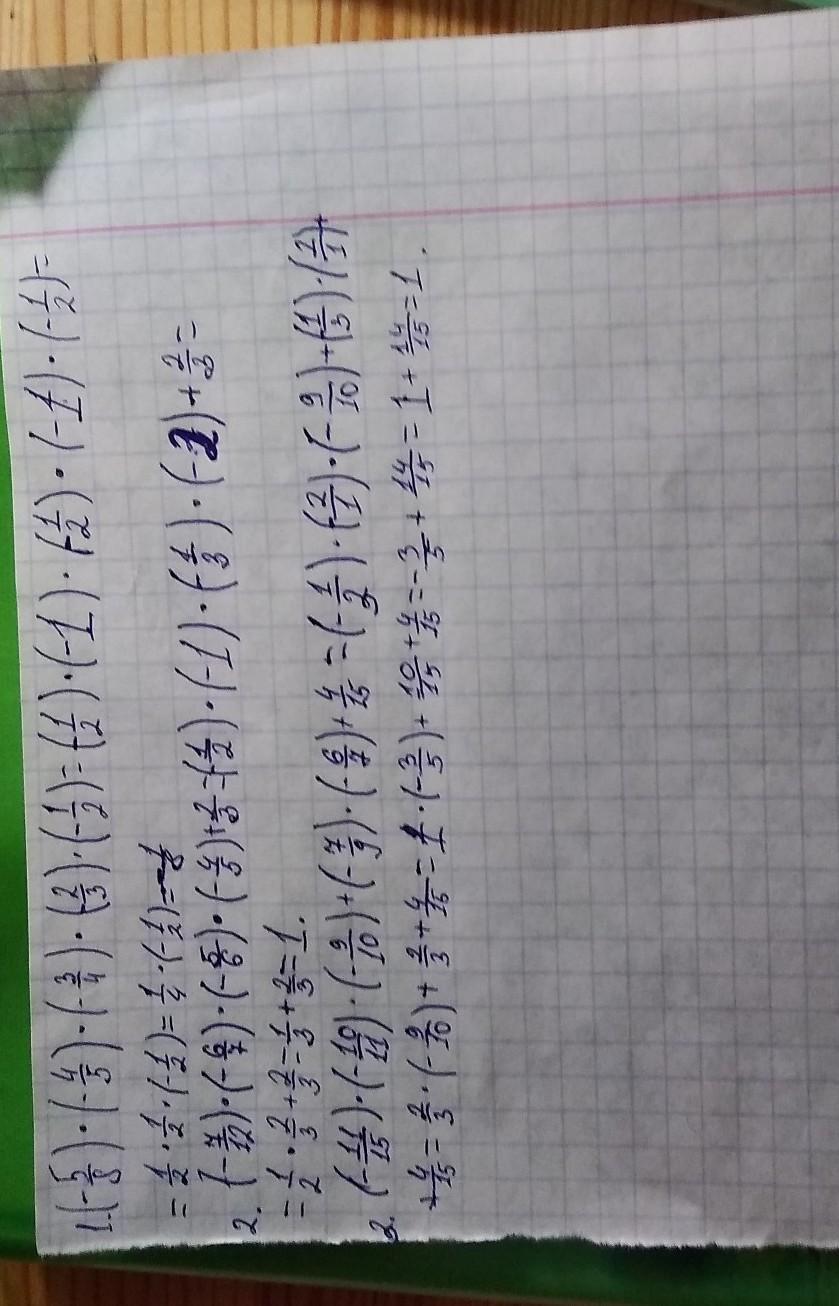 1. (-5/8)·(-4/5)·(-3/4)·(-2/3)·(-1/2)=(-1/2)·(-1)·(-1/2)·(-1)·(-1/2)=
=1/2·1/2·(-1/2)=1/4·(-1/2)=-1/8
2. (-7/12)·(-6/7)·(-5/6)·(-4/5)+2/3=(-1/2)·(-1)·(-1/3)·(-2)+2/3=
=1/2·2/3+2/3=1/3+2/3=1.
3. (-11/15)·(-10/11)·(-9/10)+(-7/9)·(-6/7)+4/15=(-1/3)·(-2/1)·(-9/10)+(-1/3)·(-2/1)+
+4/15=2/3·(-9/10)+2/3+4/15=1·(-3/5)+10/15+4/15=-3/5+14/15=1+14/15=1.